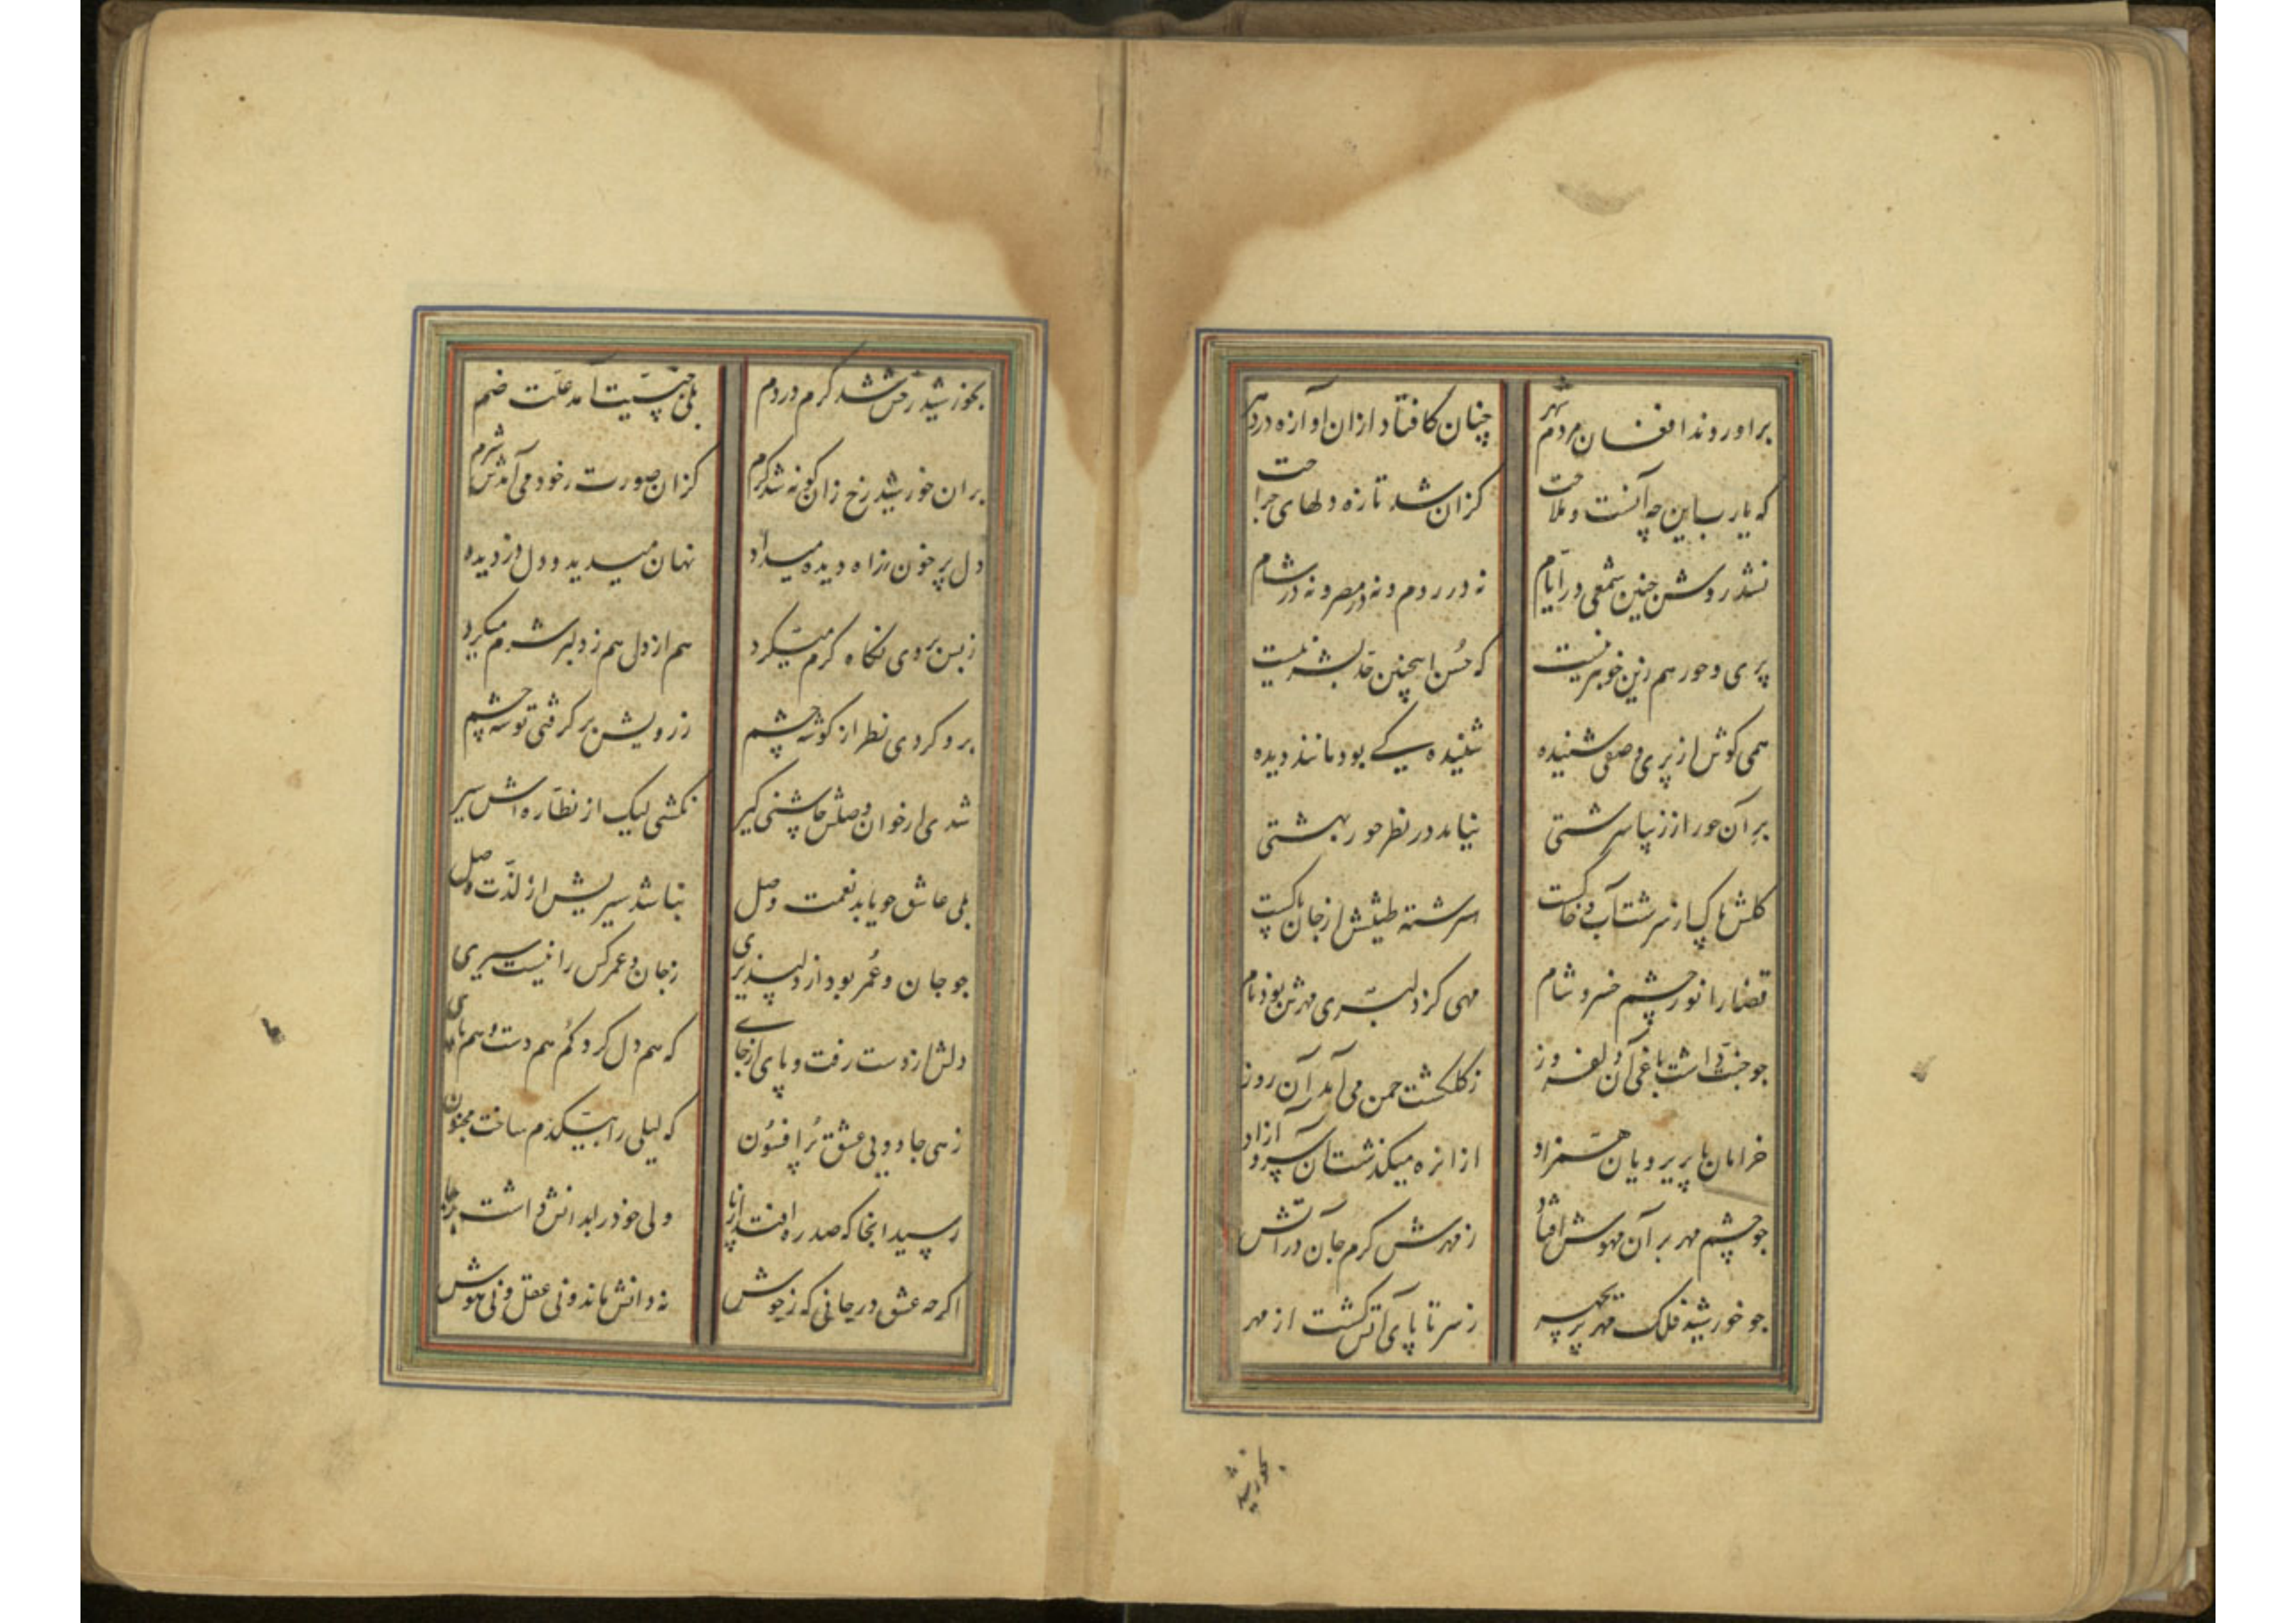 براوروند افغان مردم شهر چنان کافتاد ازان اوازه در دهر
که یارب این چه آنست و ملاحت کزان شد تازه دلهای جراحت
نشد روشن چنین شمعی در ایام نه در روم و نه در مصر و نه در شام
پری و حور هم زین خوبتر نیست که حُسن اینچنین حد بشر نیست
همی کوش از پری وصفی شنیده شنیده کے بود مانند دیده
بر آن حور از زیبا سرشتی نیاید در نظر حور بهشتی
کلش پاک از سرشت آب و خاکست سرشته طینتش از جان پاکست
قضا را نور چشم خسرو شام مهی کز دلبری مهرش بود نام
جو جنت داشت باغی آن دلفروز زکلکشت جمن می آمد آن روز
خرامان با پریرویان همزاد ازان ره میکذشت آن سرو آزاد
جو چشم مهر بر آن مهوش افتاد ز مهرش کرم جان در آتش
جو خورشید فلک مهر پریچهر ز سر تا پای آتش کشت از مهر
بخورشید
بخورشید رخش شد کرم در دم بلی جنسیت آمد علت ضم
بران خورشید رخ زان کونه شد کرم کزان صورت ز خود می آمدش شرم
دل پر خون ز راه دیده میداد نهان میدید و دل دزدیده
ز بس بروی نکاه کرم میکرد هم از دل هم ز دلبر شرم میکرد
برو کردی نظر از کوشه چشم ز رویش بر کرفتی توشه چشم
شدی از خوان وصلش چاشنی کیر نکشتی لیک از نظاره اش سیر
بلی عاشق جو یابد نعمت وصل نباشد سیریش از لذت وصل
جو جان و عُمر بود از دلپذیری ز جان و عمر کس را نیست سیری
دلش از دست رفت و پای از جاے که هم دل کرد کُم هم دست و هم پای
زهی جادویی عشق پُر افسُون که لیلی را بیکدم ساخت مجنون
رسید انجا که صد ره افتد از پا ولی خود را بدانش داشت بر جا
اکرچه عشق در جانی که زد جوش نه دانش ماند و نی عقل و نی هوش